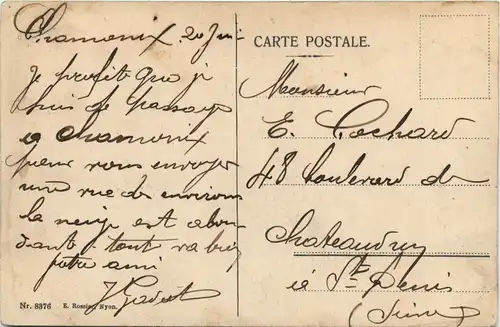 Chamonix 20 Jui
Je profit que je
suis de passage
a Chamonix
pour vous envoyer
une vue des environs
la neige est abon
dante tout va bien
votre ami
Nr. 8376 E. Rossier, Nyon.
CARTE POSTALE.
Monsieur
E. Cochard
48 boulevard de
Chateaudun
St Denis
(Seine)